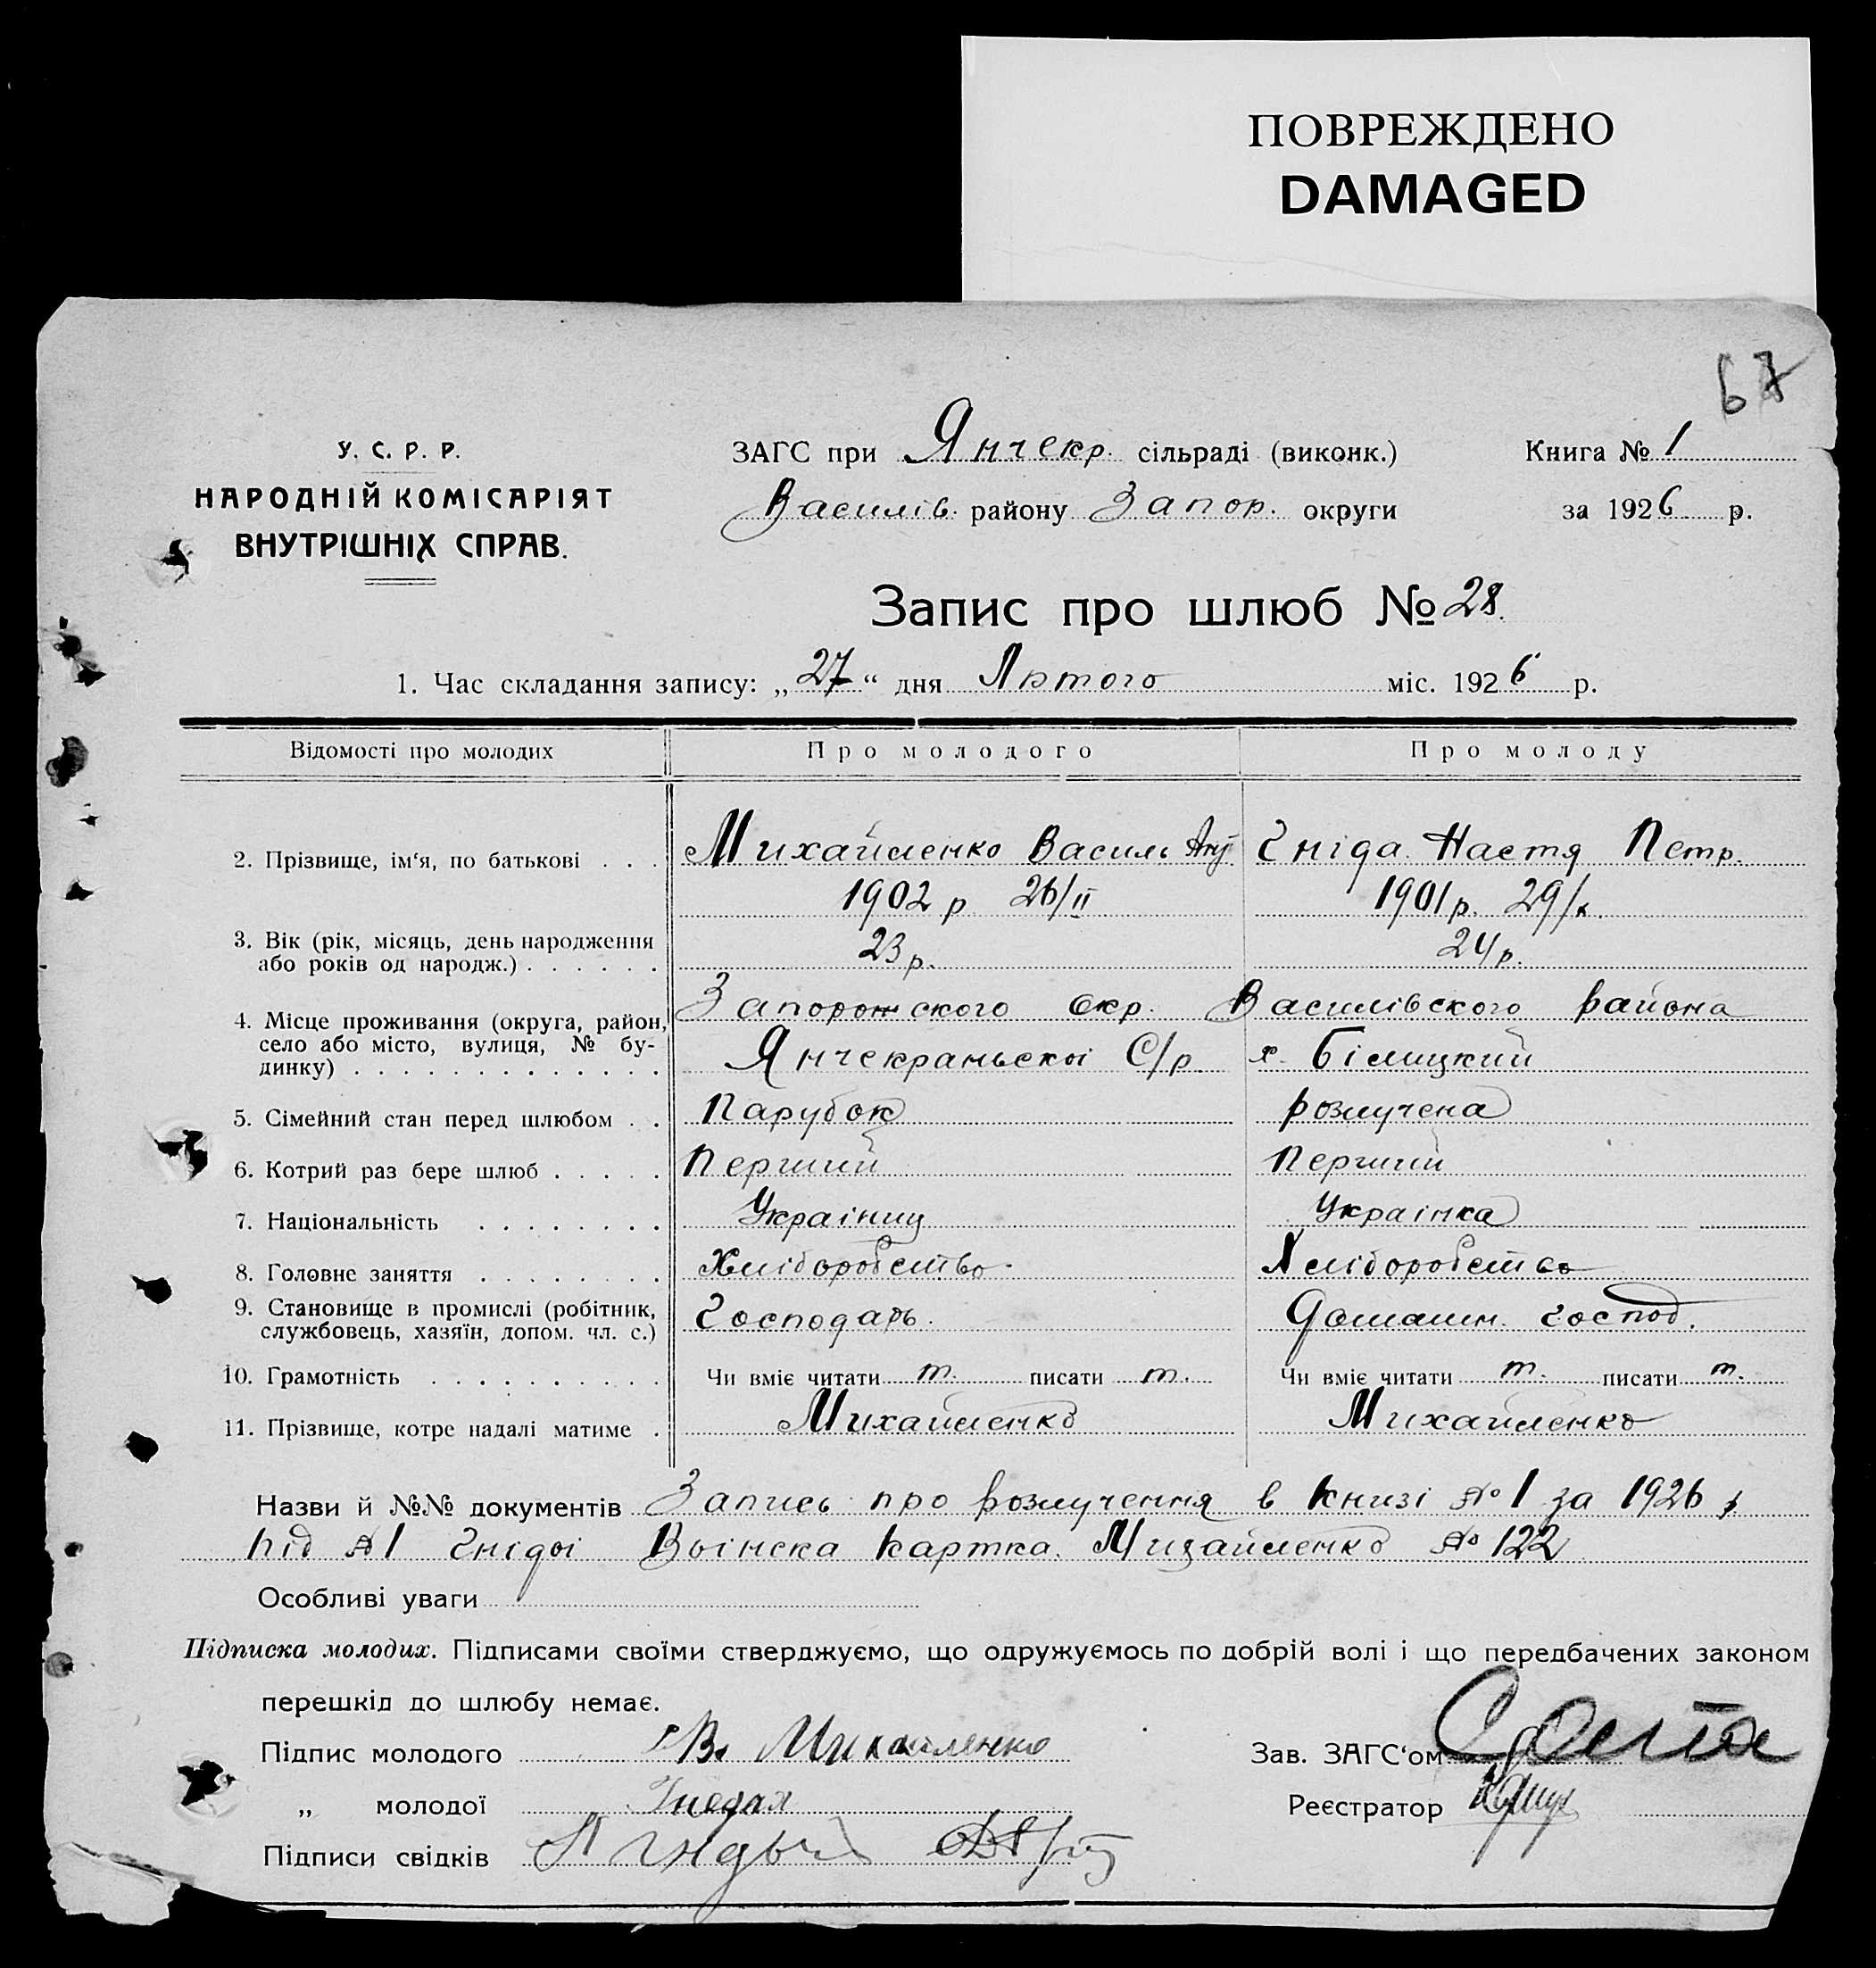 ПОВРЕЖДЕНО
DAMAGED
67
У. С. Р. Р.
НАРОДНІЙ КОМІСАРІЯТ
ВНУТРІШНІХ СПРАВ.
ЗАГС при Янчекр. сільраді (виконк.)
Василів. району Запор. округи
Книга № 1
за 1926 р.
Запис про шлюб № 28.
1. Час складання запису: „27“ дня Лютого міс. 1926 р.
Відомості про молодих Про молодого Про молоду
2. Прізвище, ім‘я, по батькові . . . Михайленко Василь Гніда Настя Петр.
1902 р 26/II 1901 р. 29/X.
3. Вік (рік, місяць, день народження
або років од народж.) . . . . . . 23 р. 24 р.
Запорожского Окр. Василівского района
4. Місце проживання (округа, район,
село або місто, вулиця, № бу-
динку) . . . . . . . . . . . . . Янчекраньскоі С/р. х. Білицкий
5. Сімейний стан перед шлюбом . . Парубок розлучена
6. Котрий раз бере шлюб . . . . . Перший Перший
7. Національність . . . . . . . . Украінец Украінка
8. Головне заняття . . . . . . . . Хліборобство. Хліборобство
9. Становище в промислі (робітник,
службовець, хазяїн, допом. чл. с.) Господарь. Домашн. господ.
10. Грамотність . . . . . . . . . . Чи вміє читати т. писати т. Чи вміє читати т. писати т.
11. Прізвище, котре надалі матиме . Михайленко Михайленко
Назви й №№ документів Запись про розлучення в книзі № 1 за 1926 р
під № 1 Гнідоі Воінска картка Михайленко № 122
Особливі уваги
Підписка молодих. Підписами своїми стверджуємо, що одружуємось по добрій волі і що передбачених законом
перешкід до шлюбу немає.
Підпис молодого В. Михайленко
Зав. ЗАГС‘ом
„ молодої Гнедая
Реєстратор
Підписи свідків